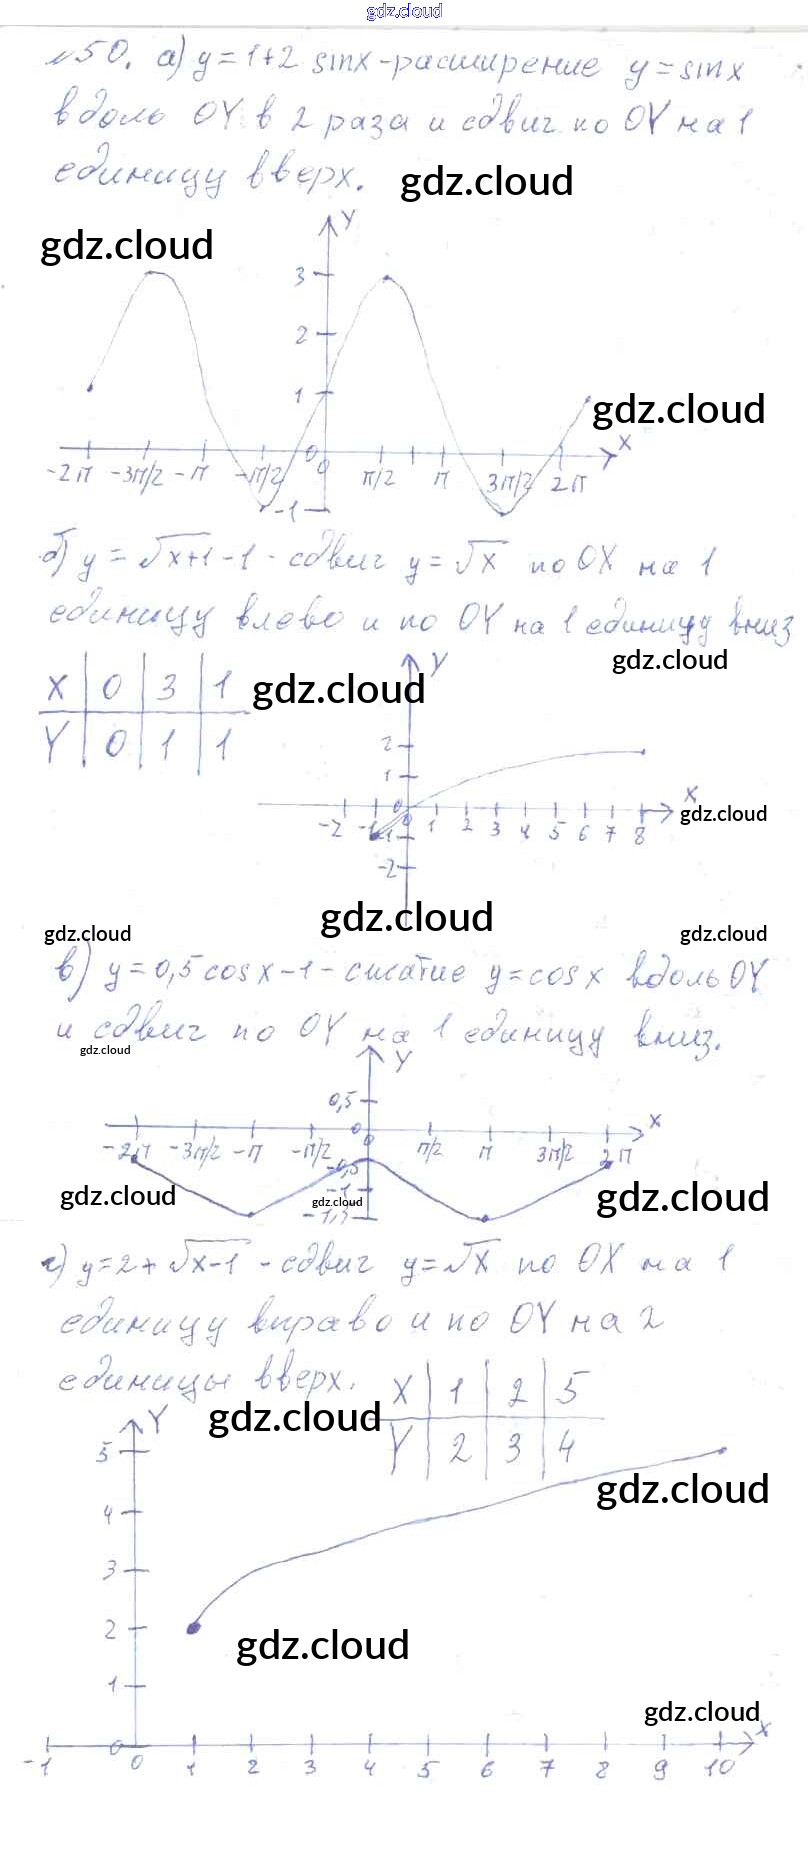 gdz.cloud
№50. а) y = 1+2 sinx - расширение y = sinx
вдоль OY в 2 раза и сдвиг по OY на 1
единицу вверх. gdz.cloud
gdz.cloud
Y
3
2
1
0
-2π -3π/2 -π -π/2 0 π/2 π 3π/2 2π X
-1
gdz.cloud
б) y = √x+1 - 1 - сдвиг y = √x по OX на 1
единицу влево и по OY на 1 единицу вниз
gdz.cloud
X 0 3 1
Y 0 1 1
gdz.cloud
Y
2
1
0
-2 -1 0 1 2 3 4 5 6 7 8 X
-1
-2
gdz.cloud
gdz.cloud
gdz.cloud gdz.cloud
в) y = 0,5 cosx - 1 - сжатие y = cosx вдоль OY
и сдвиг по OY на 1 единицу вниз.
gdz.cloud
Y
0,5
0
-2π -3π/2 -π -π/2 0 π/2 π 3π/2 2π X
-0,5
-1
gdz.cloud gdz.cloud gdz.cloud
г) y = 2 + √x-1 - сдвиг y = √x по OX на 1
единицу вправо и по OY на 2
единицы вверх.
X 1 2 5
Y 2 3 4
gdz.cloud
gdz.cloud
Y
5
4
3
2
1
0
gdz.cloud
gdz.cloud
-1 0 1 2 3 4 5 6 7 8 9 10 X